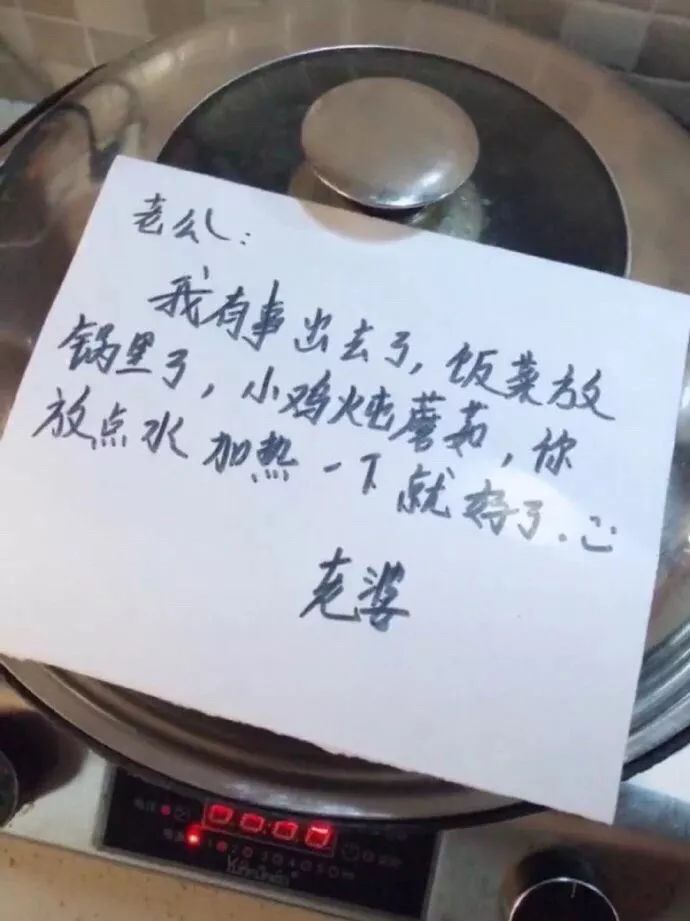 老公:
我有事出去了,饭菜放
锅里了,小鸡炖蘑菇,你
放点水 加热一下就好了.
老婆
00:07